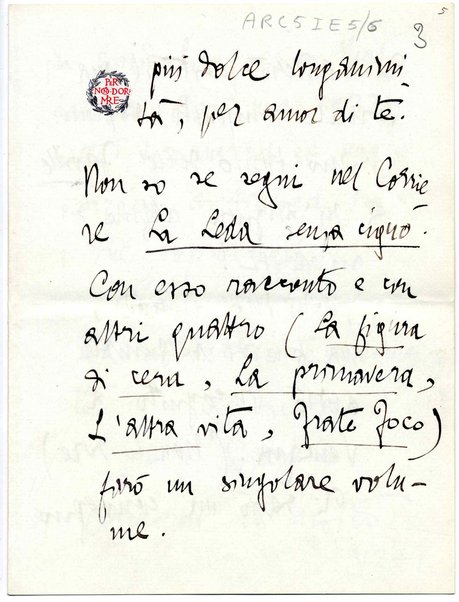 ARC5IE5/6
5
3
PER
NON DOR
MIRE
più dolce longanimi
tà, per amor di te.
Non so se segui nel Corrie
re La Leda senza cigno.
Con esso racconto e con
altri quattro (La figura
di cera, La primavera,
L'altra vita, Frate Foco)
farò un singolare volu-
me.